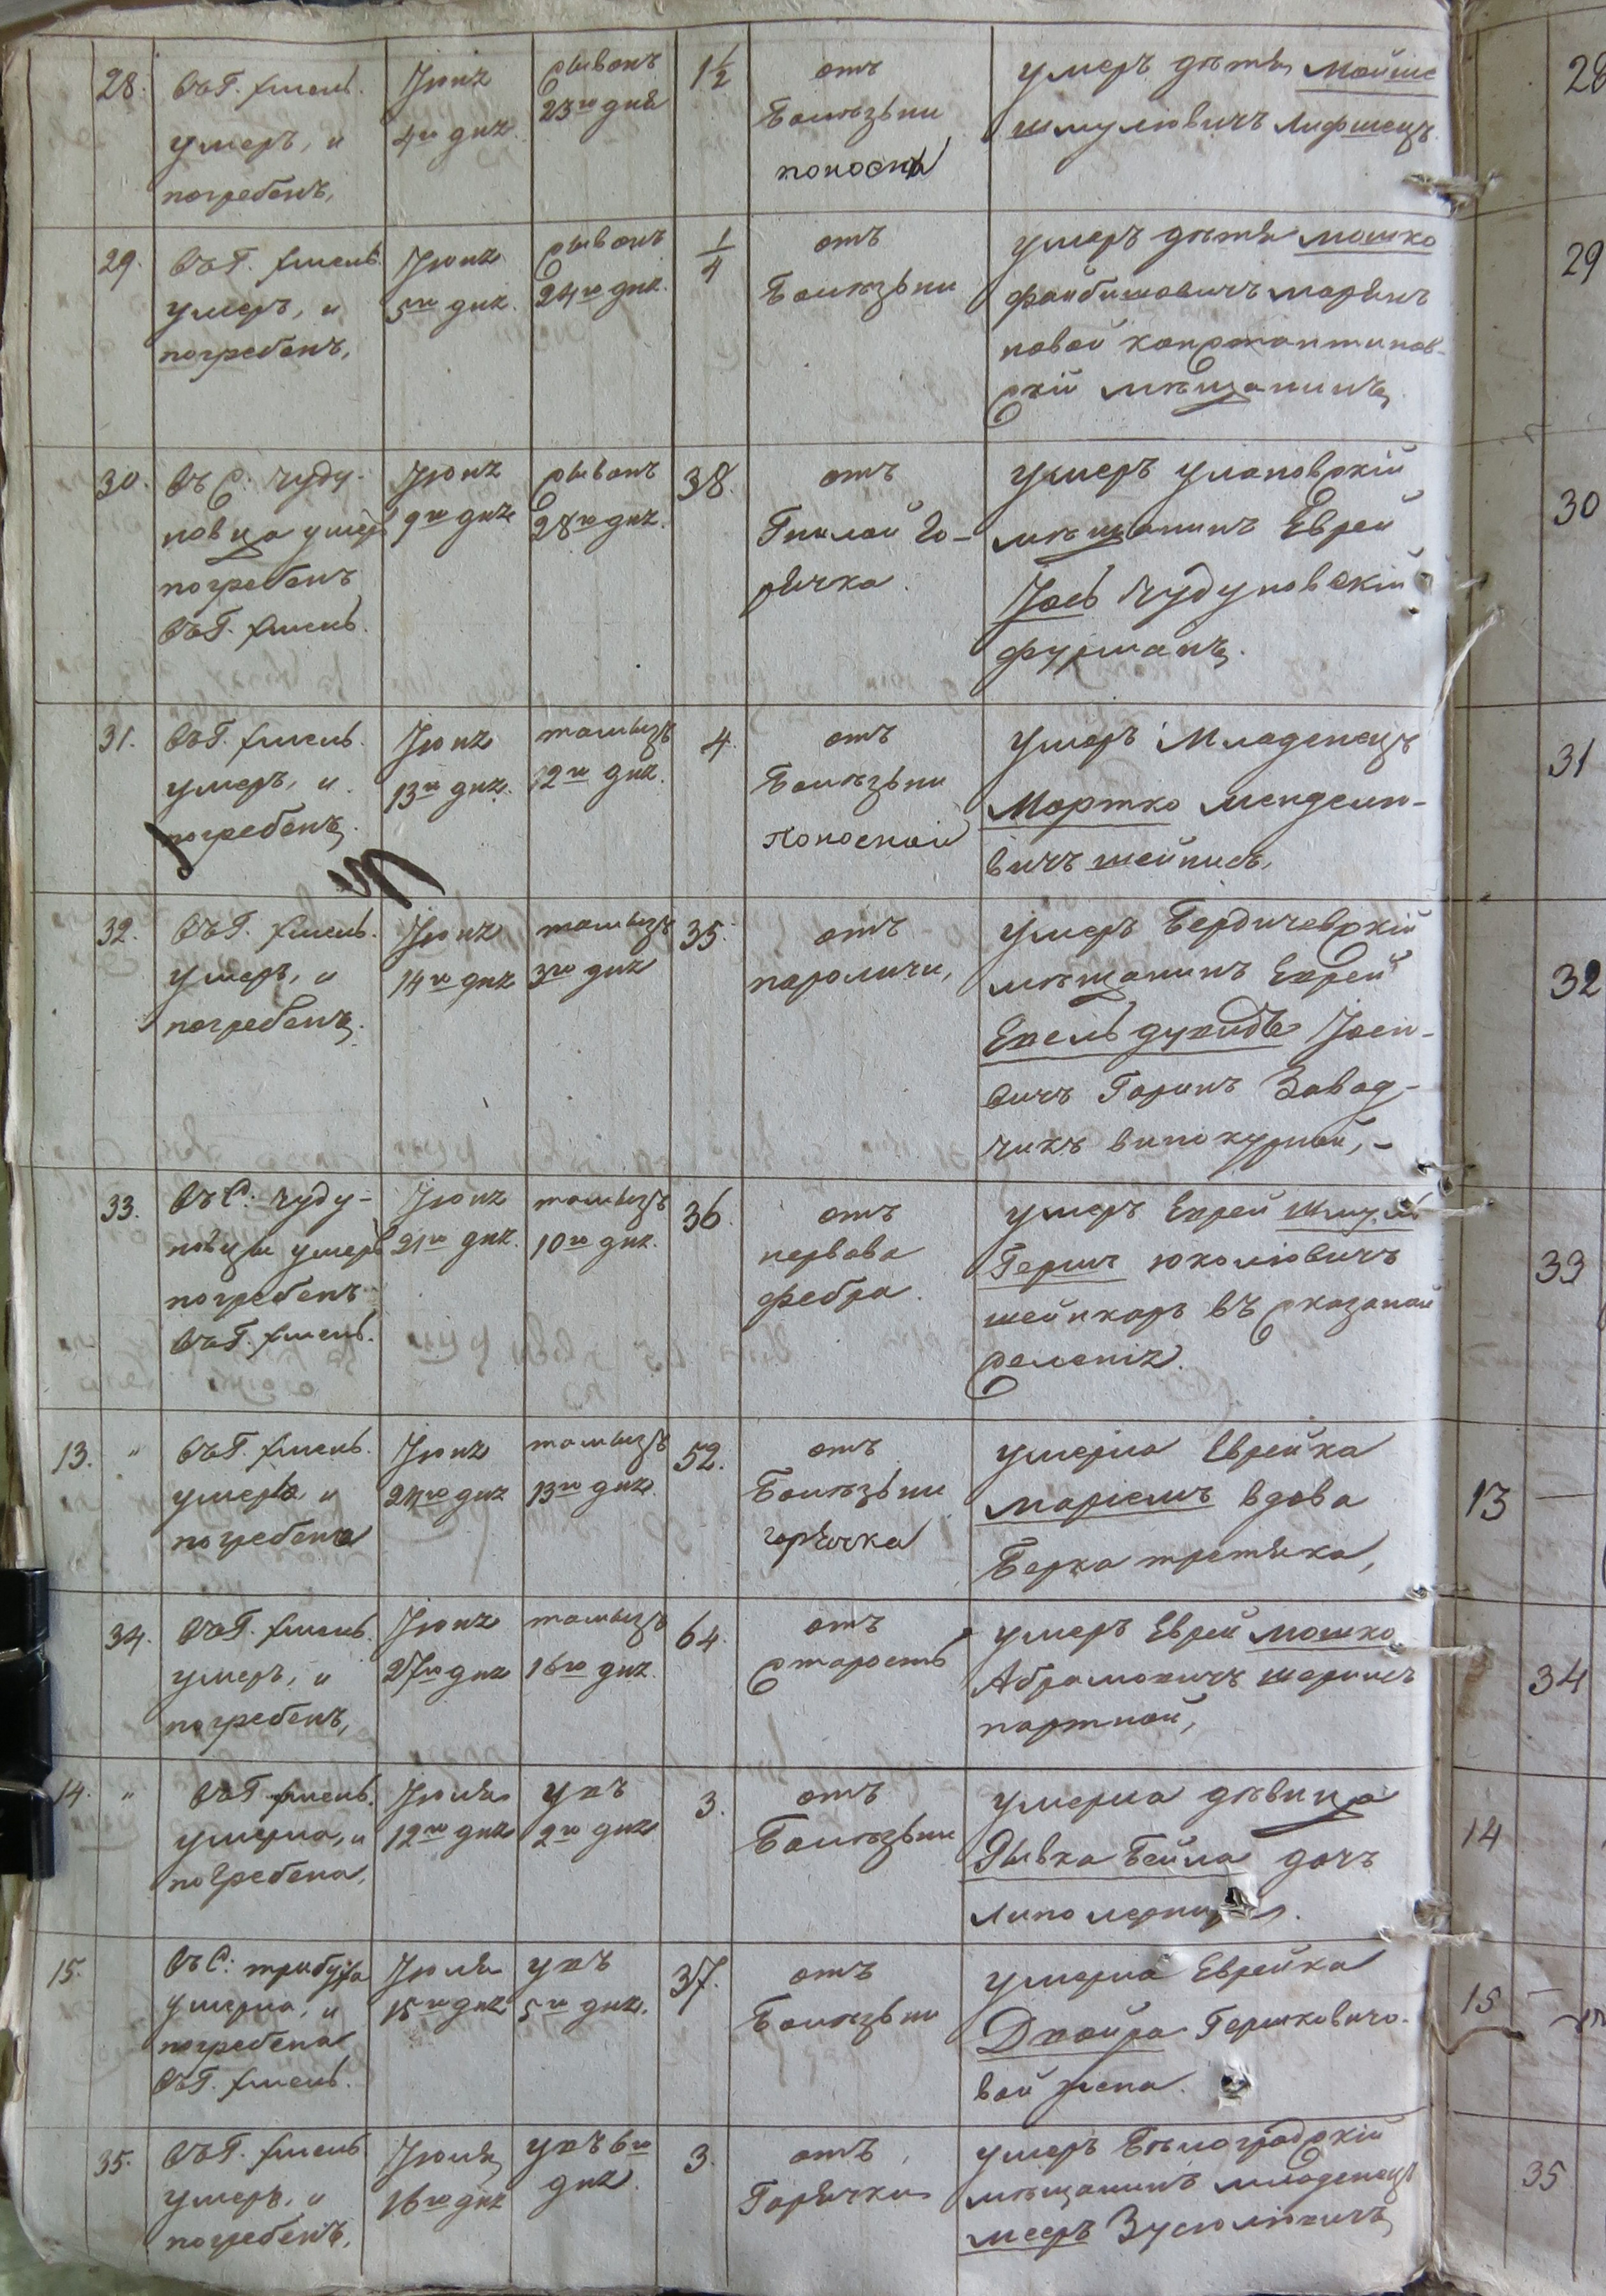 28.
въ Г. хмель.
умеръ, и
погребенъ,
Іюня
4го дня.
сывонъ
23го дня
1 1/2
отъ
Болѣзьни
поносны
умеръ дѣтя Мойше
шмулювичъ Лифшецъ
28
29.
въ Г. хмель.
умеръ, и
погребенъ,
Іюня
5го дня.
сывонъ
24го дня.
1/4
отъ
Болѣзьни
умеръ дѣтя мошко
файбишовичъ
новой констонтинов-
скій мѣщанинъ
29
30.
въ С: чуду-
новца умеръ
погребенъ
въ Г. хмель.
Іюня
9го дня
сывонъ
28го дня.
38.
отъ
Гнилой го-
рячка.
умеръ улановскій
мѣщанинъ Еврей
Іось чудуновскій
фурманъ.
30
31.
въ Г. хмель.
умеръ, и
погребенъ.
Іюня
13го дня.
томызъ
2го дня.
4.
отъ
Болѣзьни
поносной
умеръ Младенецъ
Мортко мендели-
вичъ шейнисъ,
31
32.
въ Г. хмель.
умеръ, и
погребенъ.
Іюня
14го дня
томызъ
3го дня
35.
отъ
пороличи,
умеръ Бердичевскій
мѣщанинъ Еврей
Ехель дувидъ Іоси-
вичъ Горинъ Завод-
чикъ винокурной, -
32
33.
въ С: чуду-
новцы умеръ
погребенъ
въ Г. хмель.
Іюня
21го дня.
томызъ
10го дня.
36.
отъ
нервова
фебра.
умеръ Еврей шмуль
Гершъ юколювичъ
шейнкаръ въ сказаной
селенія.
33
13. "
въ Г. хмель.
умерла и
погребена
Іюня
24го дня
томызъ
13го дня.
52.
отъ
Болѣзьни
горячка
умерла Еврейка
маріемъ вдова
Берка третяка,
13
34.
въ Г. хмель.
умеръ, и
погребенъ,
Іюня
27го дня
томызъ
16го дня.
64.
отъ
старость
умеръ Еврей мошко
Абрамовичъ
портной,
34
14. "
въ Г. хмель.
умерла, и
погребена,
Іюля
12го дня
увъ
2го дня
3.
отъ
Болѣзьни
умерла дѣвица
Рывка Бейла дочъ
14
15.
въ С:
умерла, и
погребена
въ Г. хмель.
Іюля
15го дня
увъ
5го дня.
37.
отъ
Болѣзьни
умерла Еврейка
Двойра Гершковичо-
вой жена.
15
35.
въ Г. хмель
умеръ, и
погребенъ,
Іюля
16го дня
увъ 6го
дня.
3.
отъ
Горячки
умеръ Бѣлоградскій
мѣщанинъ младенецъ
мееръ Зусюлювичъ
35